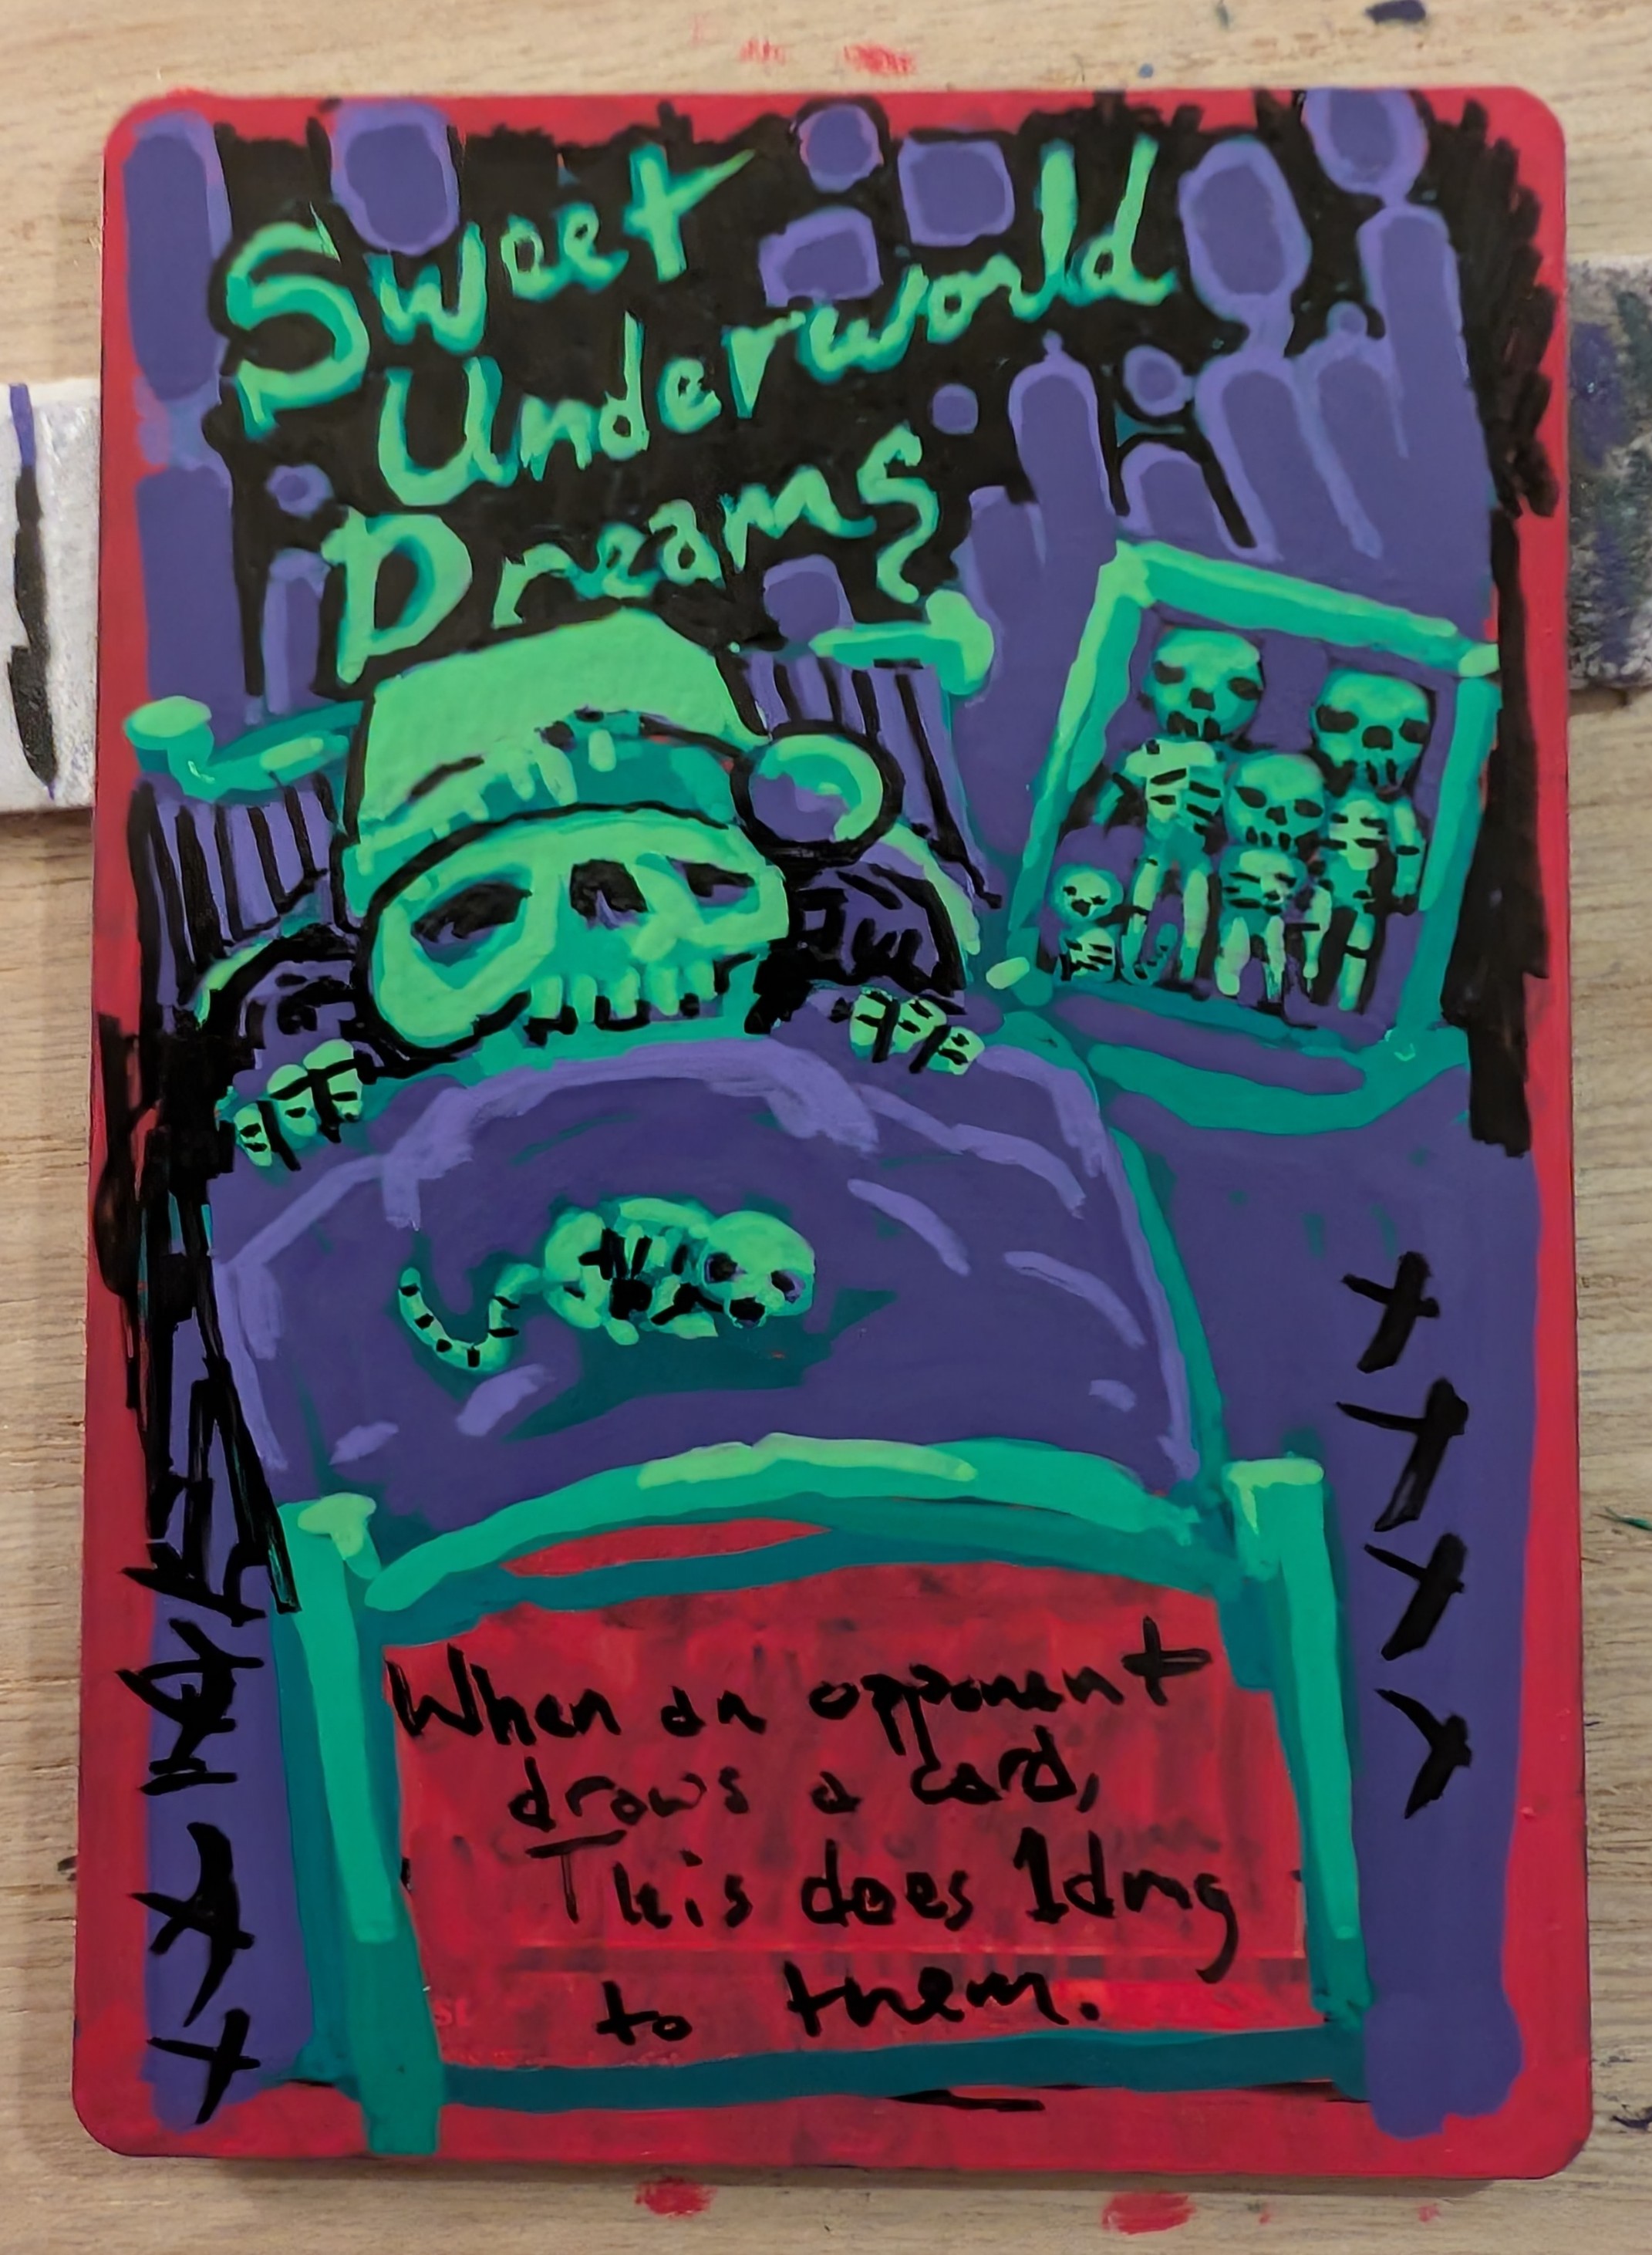 Sweet
Underworld
Dreams
When an opponent
draws a card,
This does 1dmg
to them.